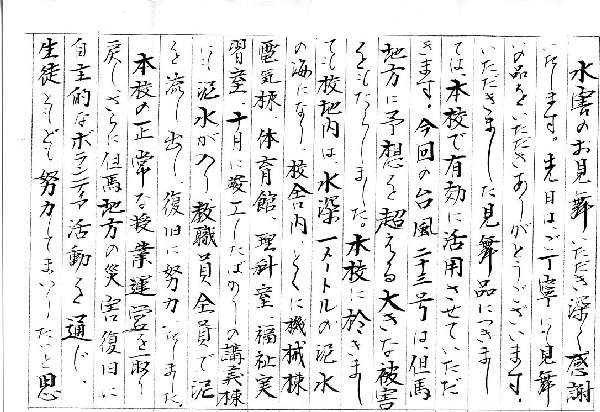 水害のお見舞いただき深く感謝
いたします。先日は、ご丁寧な見舞
の品をいただきありがとうございます。
いただきました見舞品につきまし
ては、本校で有効に活用させていただ
きます。今回の台風二十三号は、但馬
地方に予想を超える大きな被害
をもたらしました。本校に於きまし
ても校地内は水深一メートルの泥水
の海になり、校舎内、とくに機械棟
電気棟、体育館、理科室、福祉実
習室、十月に竣工したばかりの講義棟
にも泥水が入り、教職員全員で泥
を流し出し復旧に努力しました。
本校の正常な授業運営を取り
戻し、さらに但馬地方の災害復旧に
自主的なボランティア活動を通じ、
生徒ともども努力してまいりたいと思